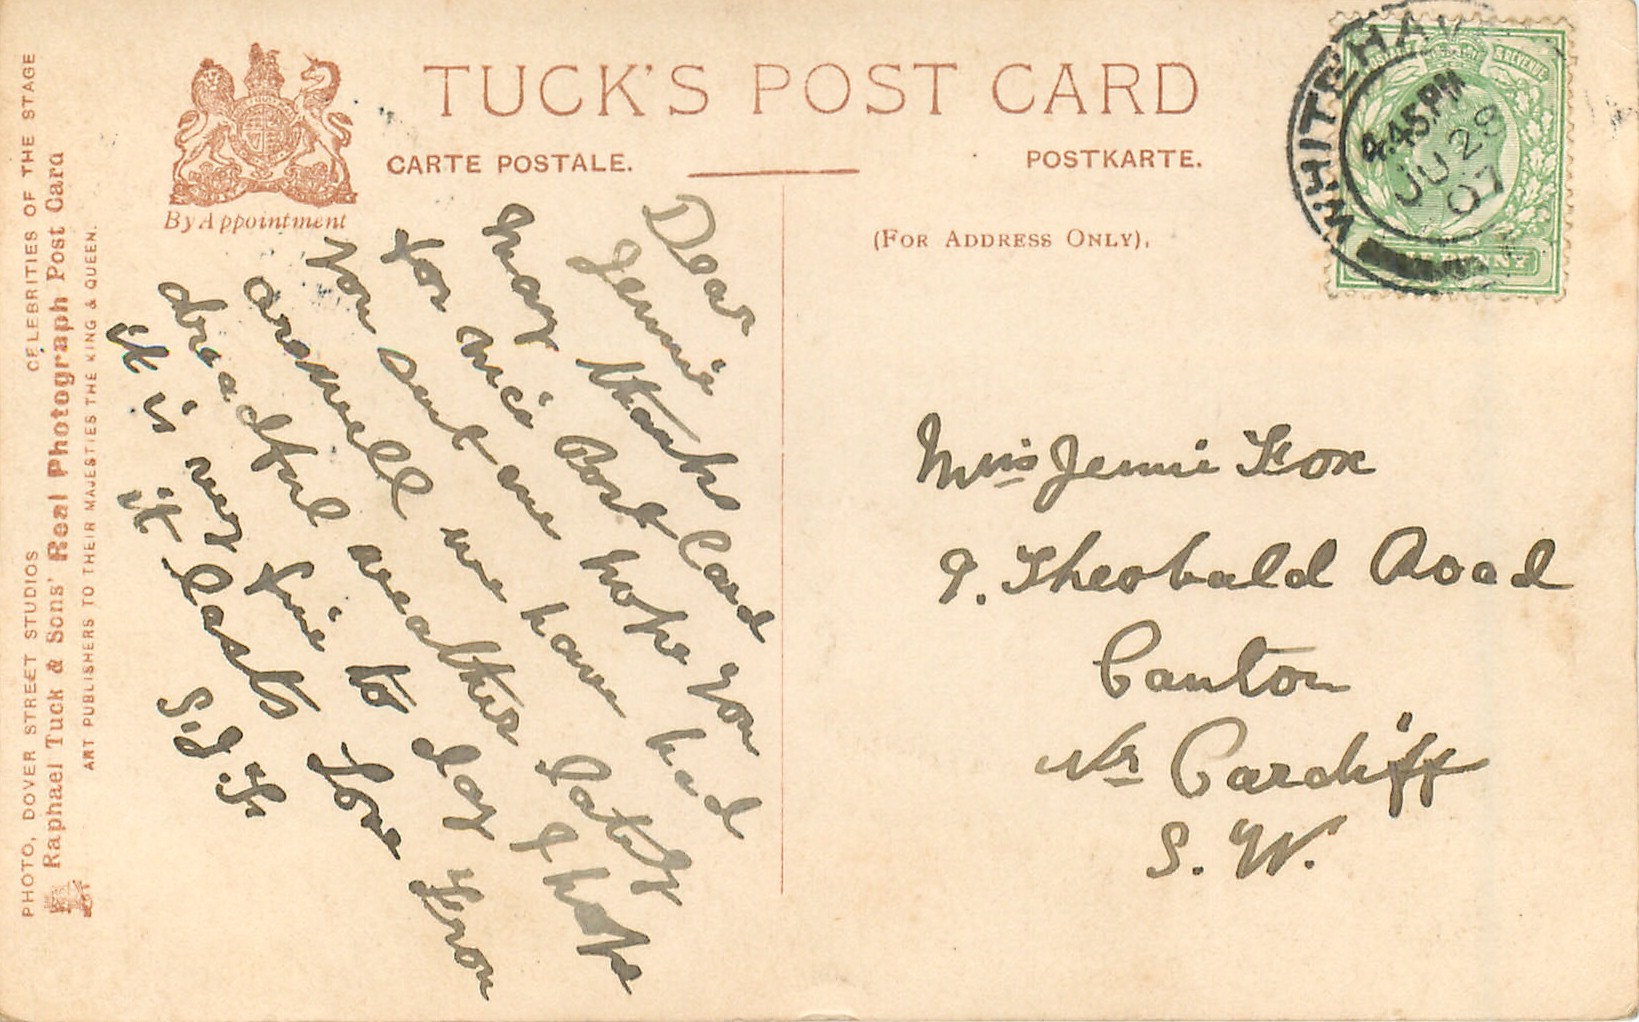 TUCK'S POST CARD
CARTE POSTALE.
POSTKARTE.
By Appointment
(FOR ADDRESS ONLY).
PHOTO, DOVER STREET STUDIOS
CELEBRITIES OF THE STAGE
Raphael Tuck & Sons' Real Photograph Post Card
ART PUBLISHERS TO THEIR MAJESTIES THE KING & QUEEN.
WHITEHAV
4.45PM
JU 28
07
& REVENUE
Dear
Jennie
many thanks
for nice Post Card
you sent me hope you
are well we have had
dreadful weather lately
it is very fine to day I hope
it lasts Love from
S.J.F.
Miss Jennie Fox
9. Theobald Road
Canton
Nr Cardiff
S. W.